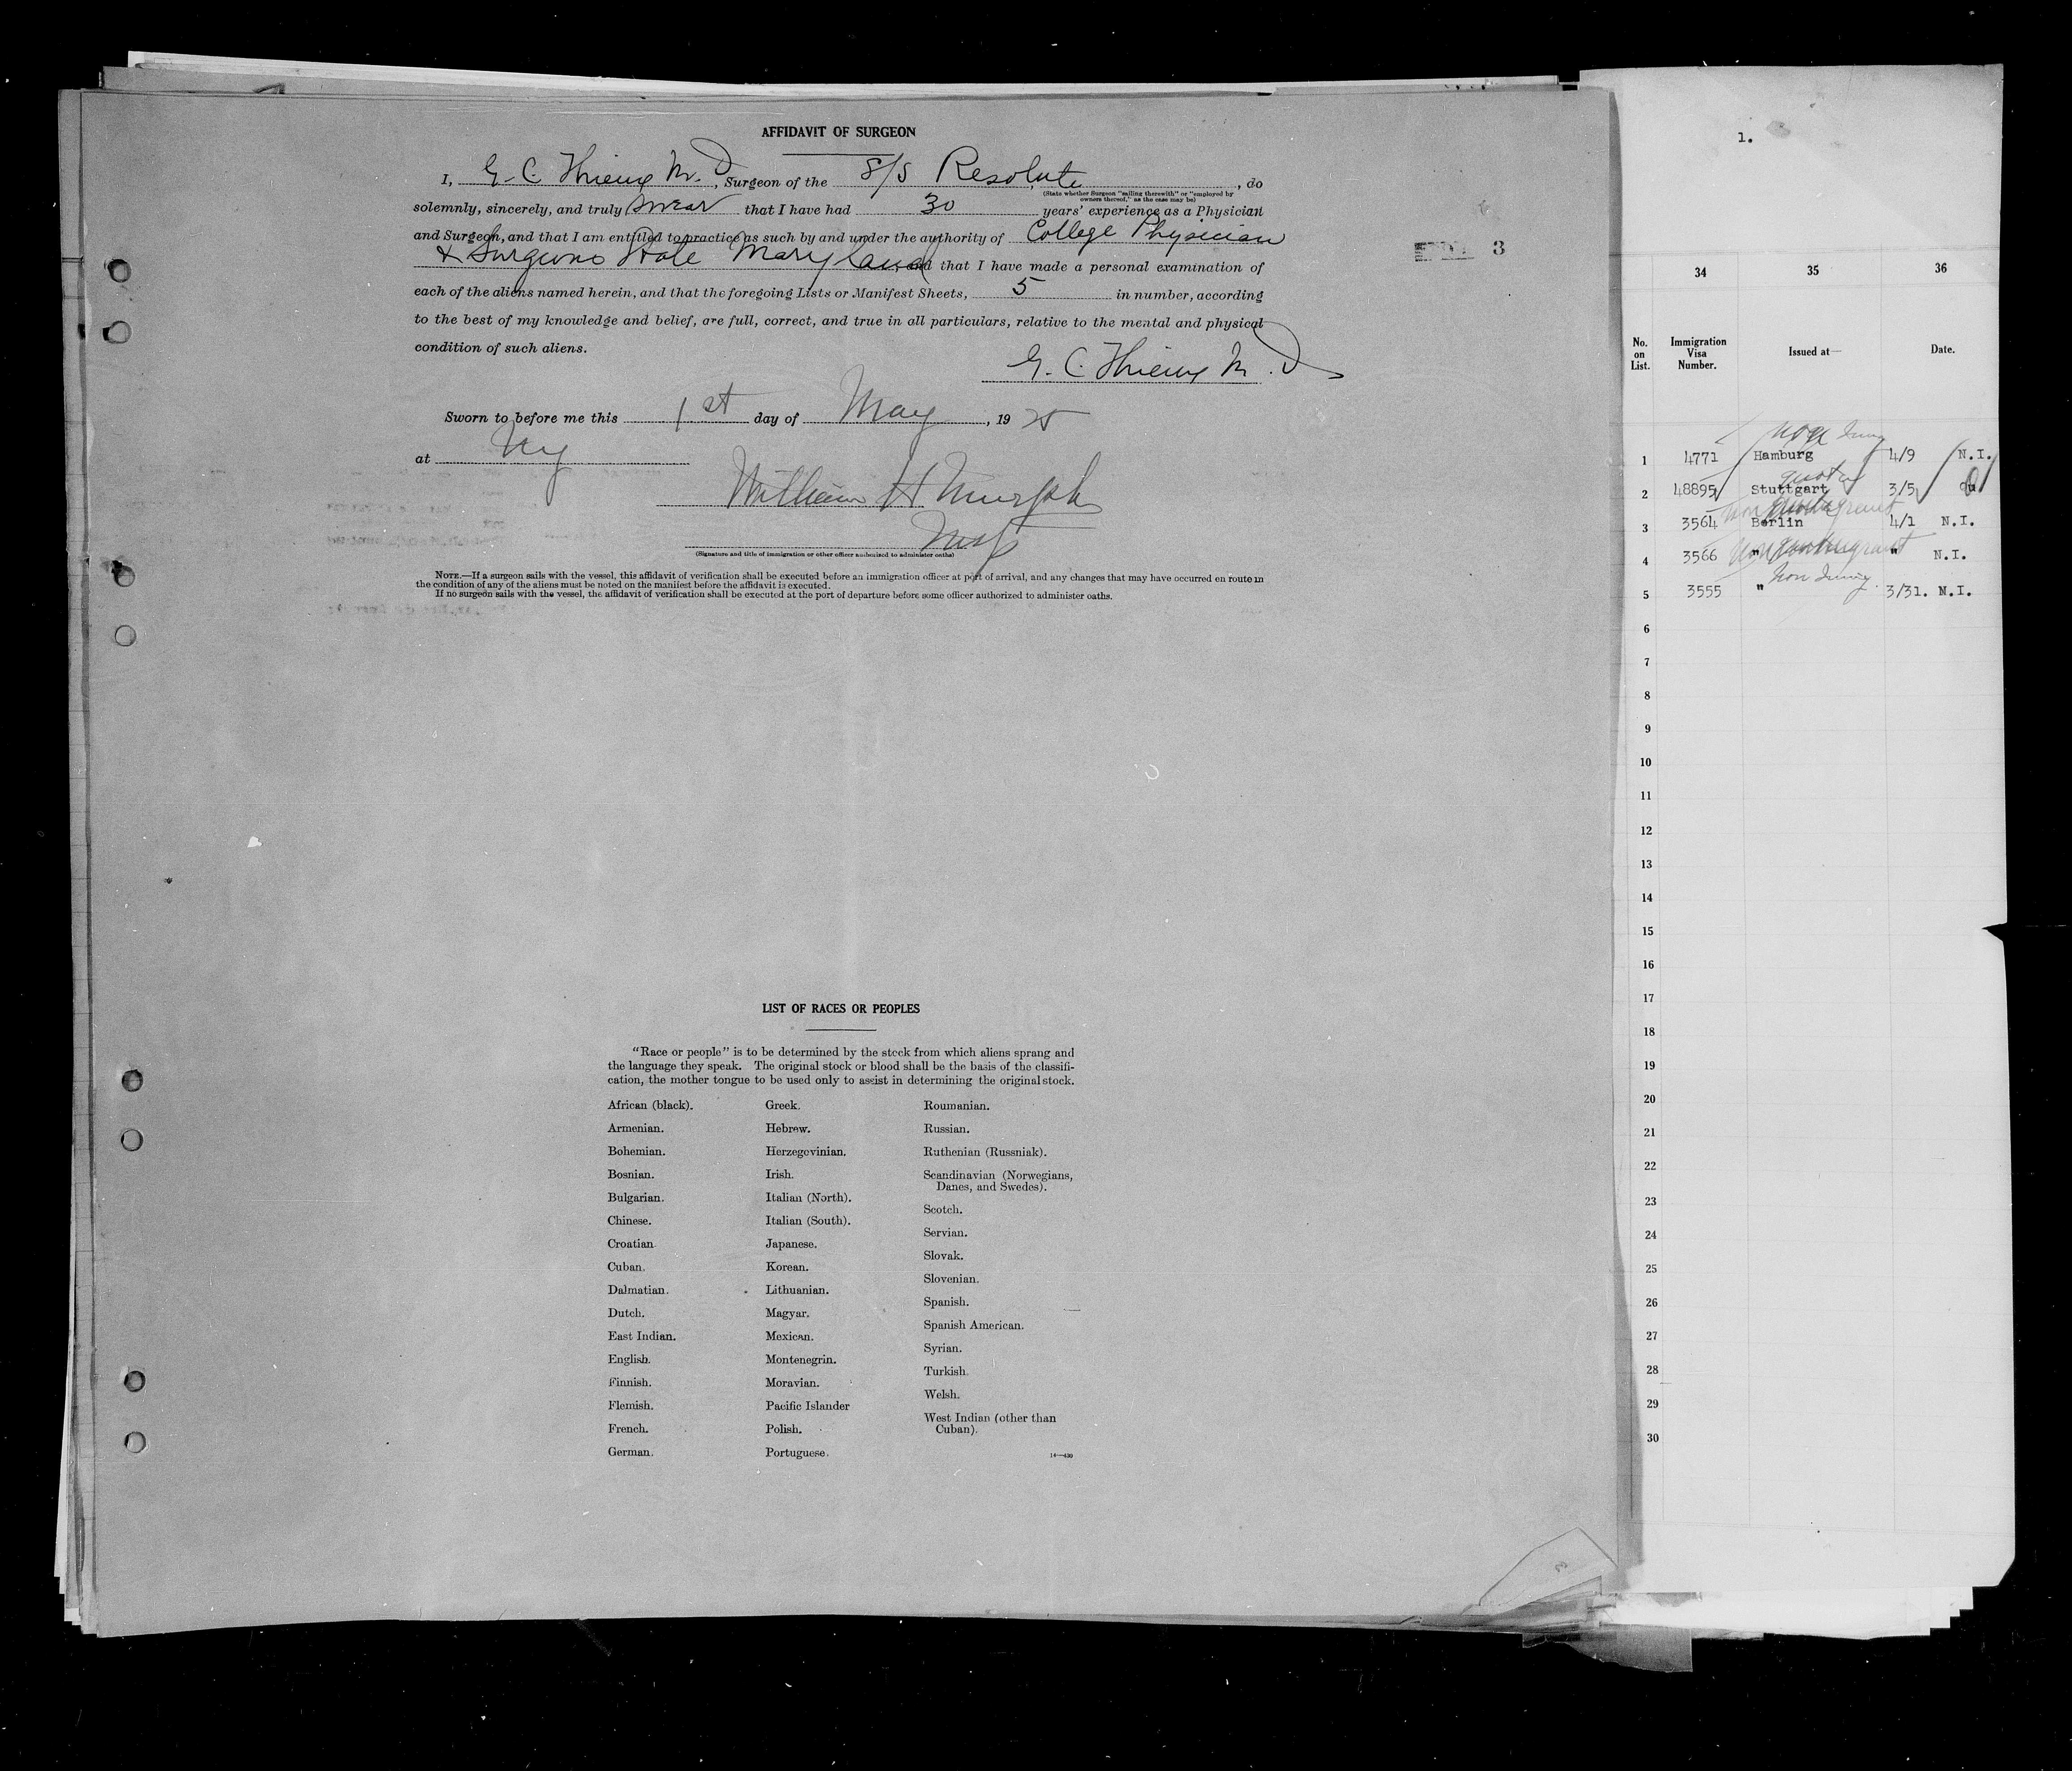 AFFIDAVIT OF SURGEON
I, G. C. M. D, Surgeon of the S/S Resolute, do
(State whether Surgeon "sailing therewith" or "employed by owners thereof," as the case may be)
solemnly, sincerely, and truly swear that I have had 30 years' experience as a Physician
and Surgeon, and that I am entitled to practice as such by and under the authority of College Physician
& Surgeons State Maryland, and that I have made a personal examination of
each of the aliens named herein, and that the foregoing Lists or Manifest Sheets, 5 in number, according
to the best of my knowledge and belief, are full, correct, and true in all particulars, relative to the mental and physical
condition of such aliens.
G. C. M. D
Sworn to before me this 1st day of May, 19 25
at NY
William H Murph
(Signature and title of immigration or other officer authorized to administer oaths)
NOTE.—If a surgeon sails with the vessel, this affidavit of verification shall be executed before an immigration officer at port of arrival, and any changes that may have occurred en route in
the condition of any of the aliens must be noted on the manifest before the affidavit is executed.
If no surgeon sails with the vessel, the affidavit of verification shall be executed at the port of departure before some officer authorized to administer oaths.
LIST OF RACES OR PEOPLES
"Race or people" is to be determined by the stock from which aliens sprang and
the language they speak. The original stock or blood shall be the basis of the classifi-
cation, the mother tongue to be used only to assist in determining the original stock.
African (black).
Armenian.
Bohemian.
Bosnian.
Bulgarian.
Chinese.
Croatian
Cuban.
Dalmatian.
Dutch.
East Indian.
English.
Finnish.
Flemish.
French.
German.
Greek.
Hebrew.
Herzegovinian.
Irish.
Italian (North).
Italian (South).
Japanese.
Korean.
Lithuanian.
Magyar.
Mexican.
Montenegrin.
Moravian.
Pacific Islander
Polish.
Portuguese.
Roumanian.
Russian.
Ruthenian (Russniak).
Scandinavian (Norwegians,
Danes, and Swedes).
Scotch.
Servian.
Slovak.
Slovenian.
Spanish.
Spanish American.
Syrian.
Turkish.
Welsh.
West Indian (other than
Cuban).
14—430
3
1.
34 35 36
No. on List. Immigration Visa Number. Issued at— Date.
non Imm
1 4771 Hamburg 4/9 N.I.
quota
2 48895 Stuttgart 3/5 Qu
3 3564 Berlin 4/1 N.I.
4 3566 " " N.I.
Non Immig.
5 3555 " 3/31. N.I.
6
7
8
9
10
11
12
13
14
15
16
17
18
19
20
21
22
23
24
25
26
27
28
29
30